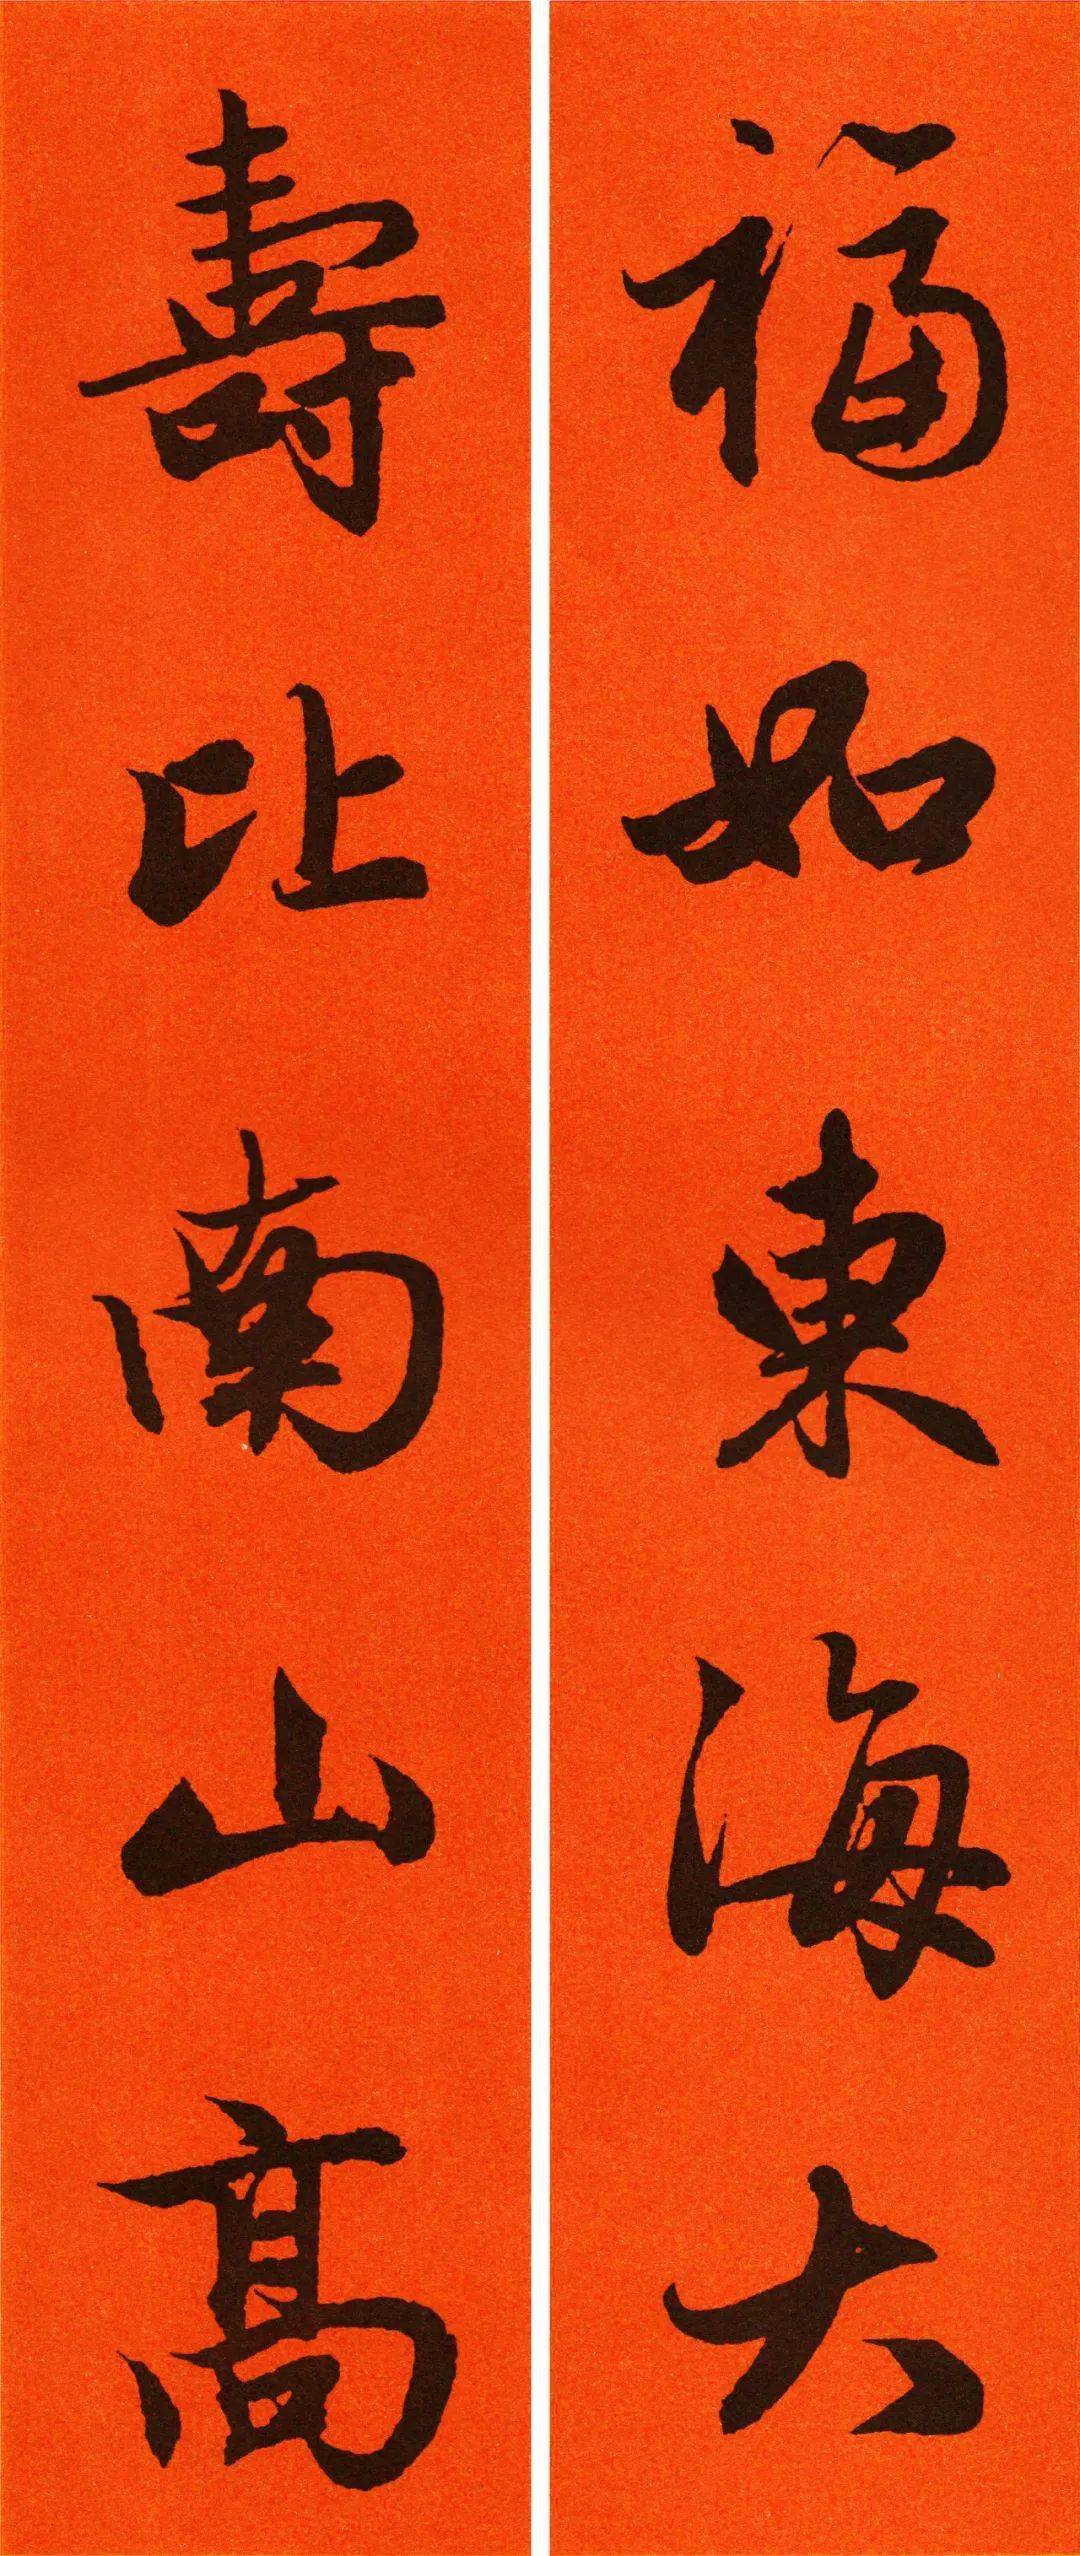 福如東海大
壽比南山高